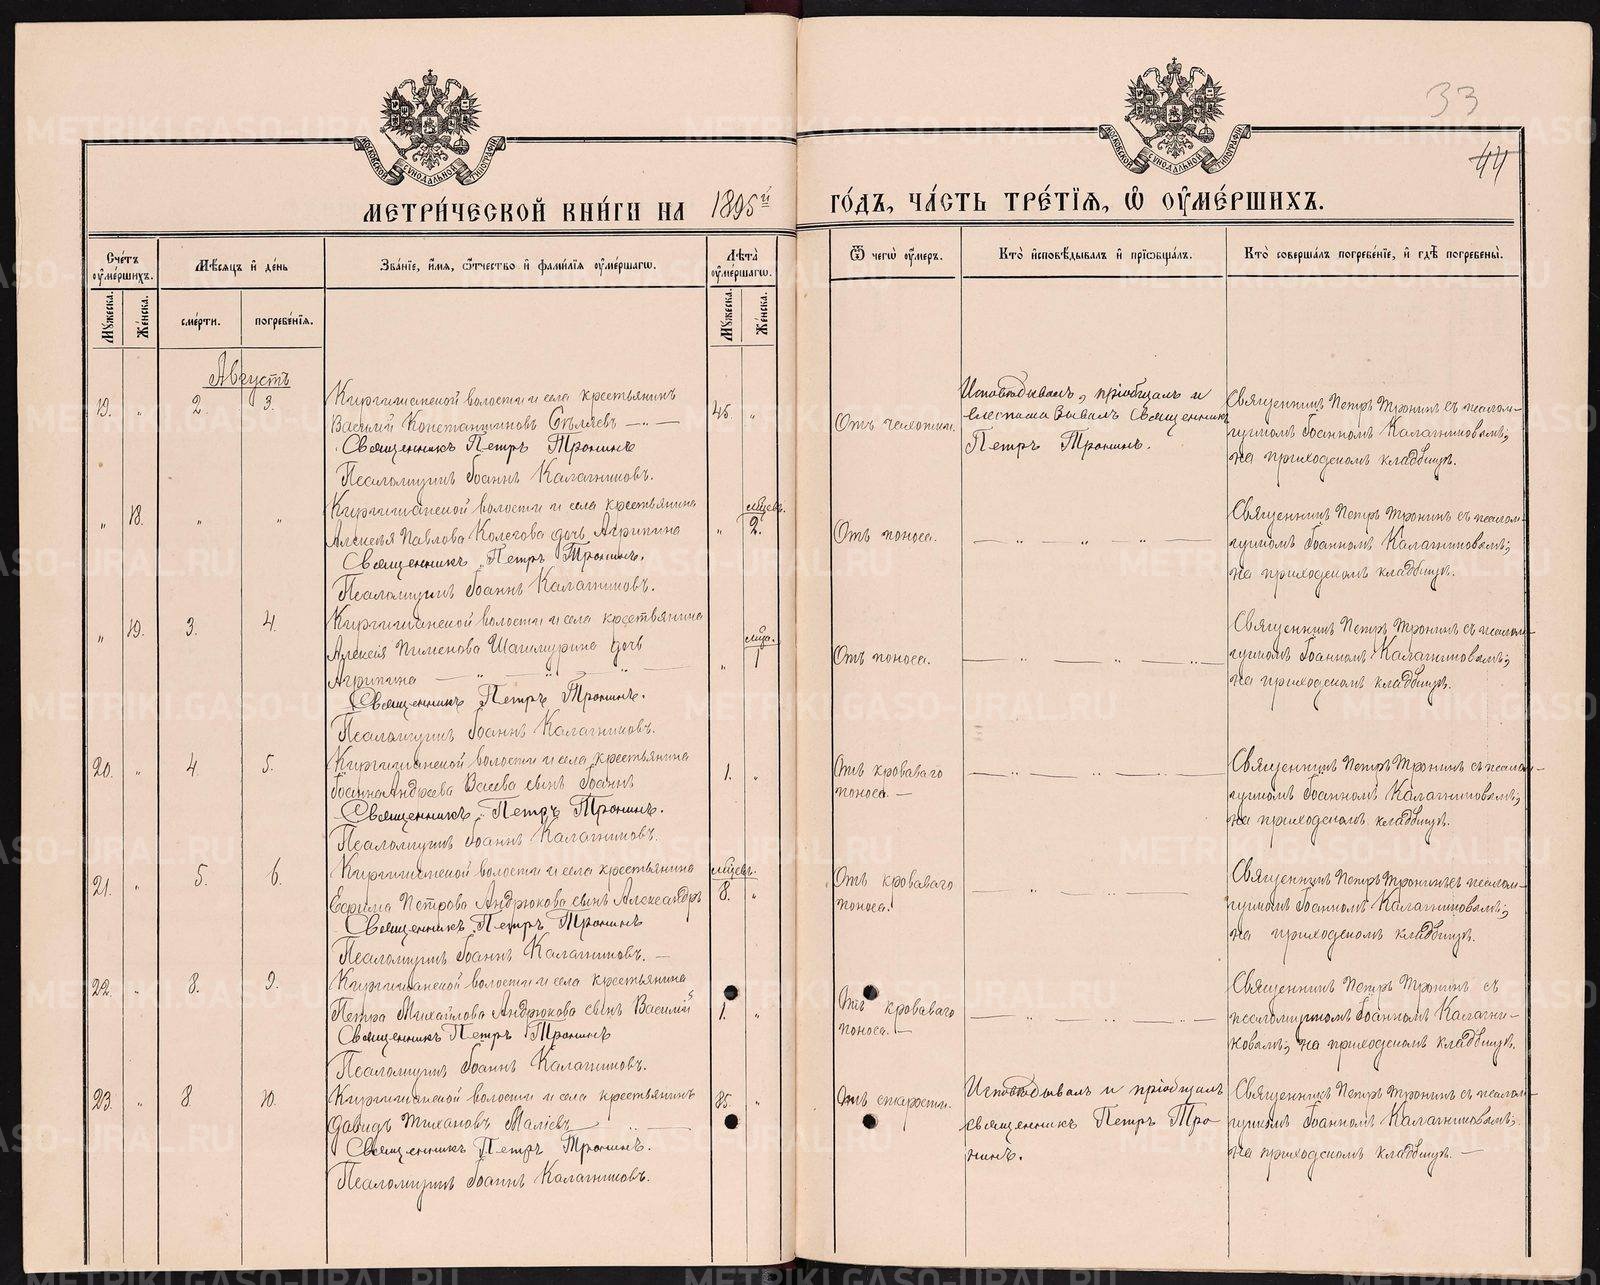 33
44
МОСКОВСКОЙ СѴНОДАЛЬНОЙ ТИПОГРАФІИ
МОСКОВСКОЙ СѴНОДАЛЬНОЙ ТИПОГРАФІИ
МЕТРИ́ЧЕСКОЙ КНИ́ГИ НА 1895й ГО́ДЪ, ЧА́СТЬ ТРЕ́ТІѦ, Ѽ ОУМЕ́РШИХЪ.
Сче́тъ оуме́ршихъ.
Мѣ́сяцъ и҆ де́нь
Зва́нїе, и҆́мѧ, ѻ҆́тчество и҆ фами́лїѧ оуме́ршагѡ.
Лѣ́та оуме́ршагѡ.
Ѿ чегѡ̀ оу́меръ.
Кто̀ и҆сповѣ́дывалъ и҆ прїѡбща́лъ.
Кто̀ соверша́лъ погребе́нїе, и҆ гдѣ̀ погребены̀.
Мꙋ́жеска.
Же́нска.
сме́рти.
погребе́нїѧ.
Мꙋ́жеска.
Же́нска.
Августъ
19. " 2. 3. Киргишанской волости и села крестьянинъ
Василій Константиновъ — " —
45. "
Священникъ Петръ Тронинъ
Псаломщикъ Іоаннъ Калачниковъ.
Отъ чахотки.
Исповѣдывалъ, пріобщалъ и
елеопомазывалъ Священникъ
Петръ Тронинъ.
Священникъ Петръ Тронинъ съ псалом-
щикомъ Іоанномъ Калачниковымъ;
на приходскомъ кладбищѣ.
" 18. " " Киргишанской волости и села крестьянина
Алексія Павлова Колегова дочь Агрипина
" мѣсцев. 2.
Священникъ Петръ Тронинъ.
Псаломщикъ Іоаннъ Калачниковъ.
Отъ поноса.
— " — " — " —
Священникъ Петръ Тронинъ съ псалом-
щикомъ Іоанномъ Калачниковымъ;
на приходскомъ кладбищѣ.
" 19. 3. 4. Киргишанской волости и села крестьянина
Алексія Пименова Шашмурина дочь
Агрипина — " — " — " —
" мѣца. 1
Священникъ Петръ Тронинъ.
Псаломщикъ Іоаннъ Калачниковъ.
Отъ поноса.
— " — " — " —
Священникъ Петръ Тронинъ съ псалом-
щикомъ Іоанномъ Калачниковымъ;
на приходскомъ кладбищѣ.
20. " 4. 5. Киргишанской волости и села крестьянина
Іоанна Андреева Васева сынъ Іоаннъ
1. "
Священникъ Петръ Тронинъ.
Псаломщикъ Іоаннъ Калачниковъ.
Отъ кроваваго
поноса. —
— " — " — " —
Священникъ Петръ Тронинъ съ псалом-
щикомъ Іоанномъ Калачниковымъ;
на приходскомъ кладбищѣ.
21. " 5. 6. Киргишанской волости и села крестьянина
Ефима Петрова Андрюкова сынъ Александръ
мѣсцевъ. 8. "
Священникъ Петръ Тронинъ
Псаломщикъ Іоаннъ Калачниковъ. —
Отъ кроваваго
поноса.
— " — " —
Священникъ Петръ Тронинъ съ псалом-
щикомъ Іоанномъ Калачниковымъ;
на приходскомъ кладбищѣ.
22. " 8. 9. Киргишанской волости и села крестьянина
Петра Михайлова Андрюкова сынъ Василій
1. "
Священникъ Петръ Тронинъ
Псаломщикъ Іоаннъ Калачниковъ.
Отъ кроваваго
поноса. —
— " — " — " —
Священникъ Петръ Тронинъ съ
псаломщикомъ Іоанномъ Калачни-
ковымъ; на приходскомъ кладбищѣ.
23. " 8. 10. Киргишанской волости и села крестьянинъ
Давидъ Тихановъ Маліевъ — " —
85. "
Священникъ Петръ Тронинъ.
Псаломщикъ Іоаннъ Калачниковъ.
Отъ старости.
Исповѣдывалъ и пріобщалъ
священникъ Петръ Тро-
нинъ.
Священникъ Петръ Тронинъ съ псалом-
щикомъ Іоанномъ Калачниковымъ;
на приходскомъ кладбищѣ. —
METRIKI.GASO-URAL.RU